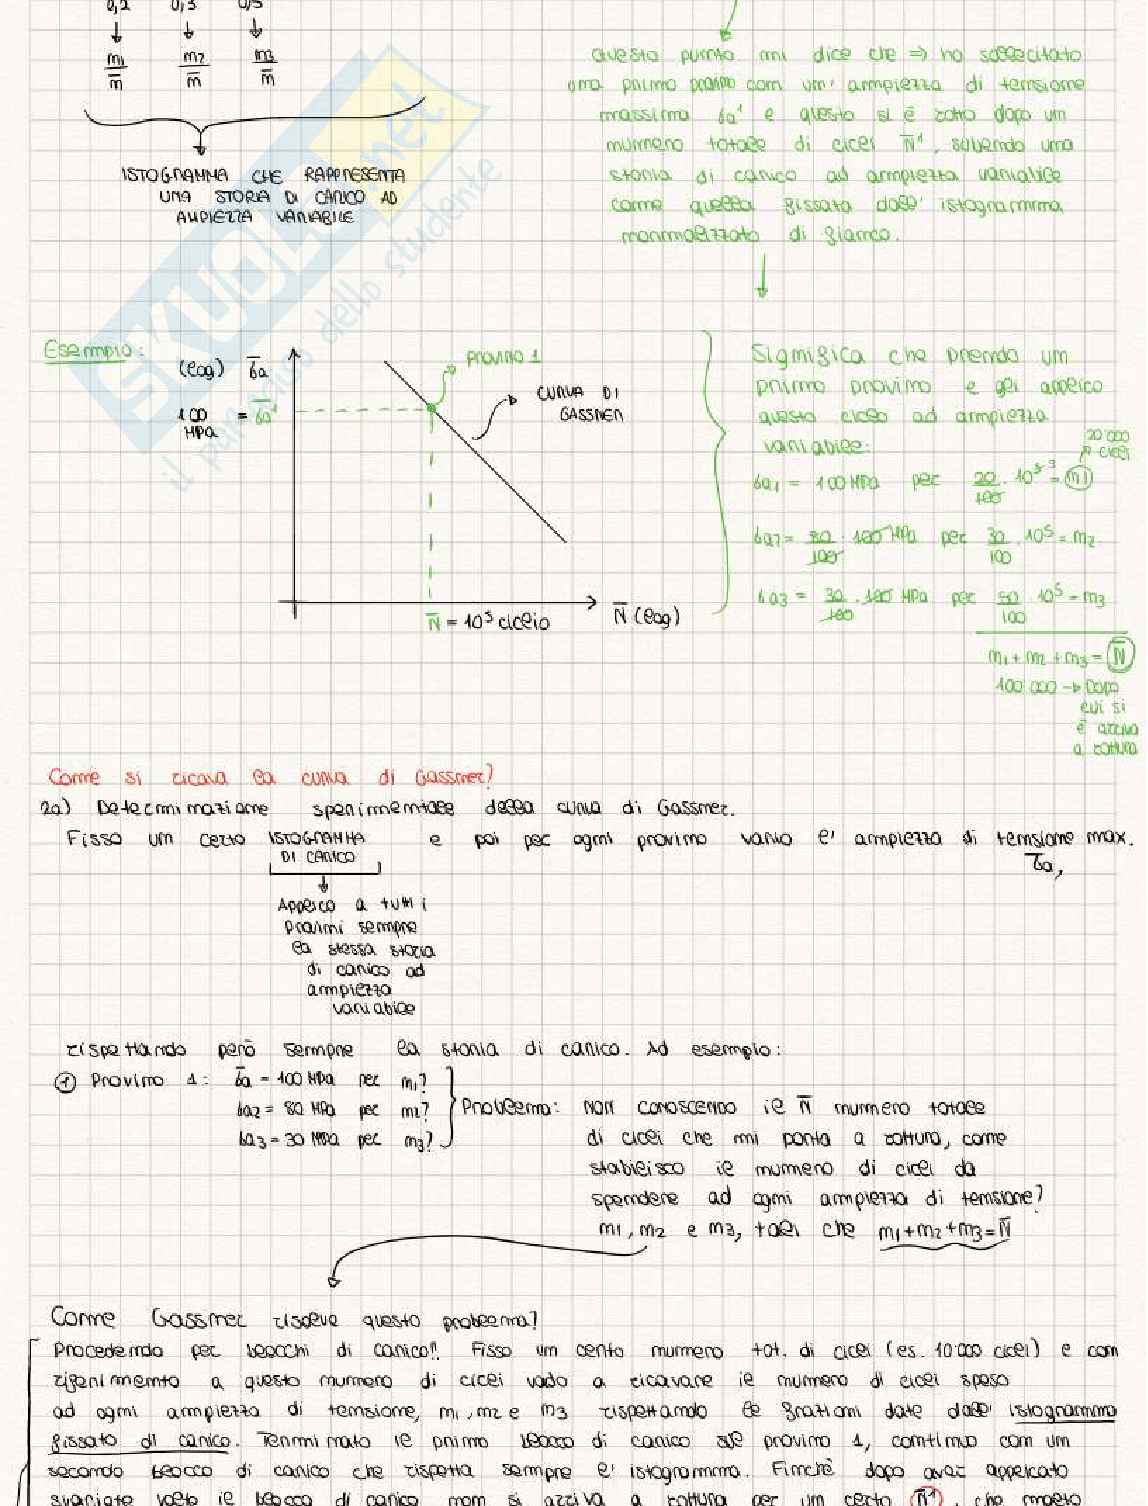 0,2 0,3 0,5
n1/n̄ n2/n̄ n3/n̄
ISTOGRAMMA CHE RAPPRESENTA
UNA STORIA DI CARICO AD
AMPIEZZA VARIABILE
Questo punto mi dice che => ho sollecitato
una primo provino con un' ampiezza di tensione
massima σ̄a¹ e questo si è rotto dopo un
numero totale di cicli N̄¹, subendo una
storia di carico ad ampiezza variabile
come quella fissata dall' istogramma
normalizzato di fianco.
SKUOLA.net
il paradiso dello studente
Esempio:
(log) σ̄a
100 MPa = σ̄a¹
PROVINO 1
CURVA DI
GASSNER
N̄ = 10⁵ ciclio
N̄ (log)
Significa che prendo un
primo provino e gli applico
questo ciclo ad ampiezza
variabile:
20'000 cicli
σa1 = 100 MPa per 20/100 · 10⁵ ³ = n1
σa2 = 80/100 · 100 MPa per 30/100 · 10⁵ = n2
σa3 = 30/100 · 100 MPa per 50/100 · 10⁵ = n3
n1 + n2 + n3 = N̄
100'000 -> Dopo
cui si
è arriva
a rottura
Come si ricava la curva di Gassner?
2a) Determinazione sperimentale della curva di Gassner.
Fisso un certo ISTOGRAMMA DI CARICO e poi per ogni provino vario l' ampiezza di tensione max.
σ̄a,
Applico a tutti i
provini sempre
la stessa storia
di carico ad
ampiezza
variabile
rispettando però sempre la storia di carico. Ad esempio:
① Provino 1: σ̄a = 100 MPa per n1?
σa2 = 80 MPa per n2?
σa3 = 30 MPa per n3?
Problema: NON CONOSCENDO il N̄ numero totale
di cicli che mi porta a rottura, come
stabilisco il numero di cicli da
spendere ad ogni ampiezza di tensione?
n1, n2 e n3, tali che n1+n2+n3=N̄
Come Gassner risolve questo problema?
Procedendo per blocchi di carico!! Fisso un certo numero tot. di cicli (es. 10'000 cicli) e con
riferimento a questo numero di cicli vado a ricavare il numero di cicli speso
ad ogni ampiezza di tensione, n1, n2 e n3 rispettando le frazioni date dall' istogramma
fissato di carico. Terminato il primo blocco di carico sul provino 1, continuo con un
secondo blocco di carico che rispetta sempre l' istogramma. Finché dopo aver applicato
svariate volte il blocco di carico non si arriva a rottura per un certo N̄¹, che